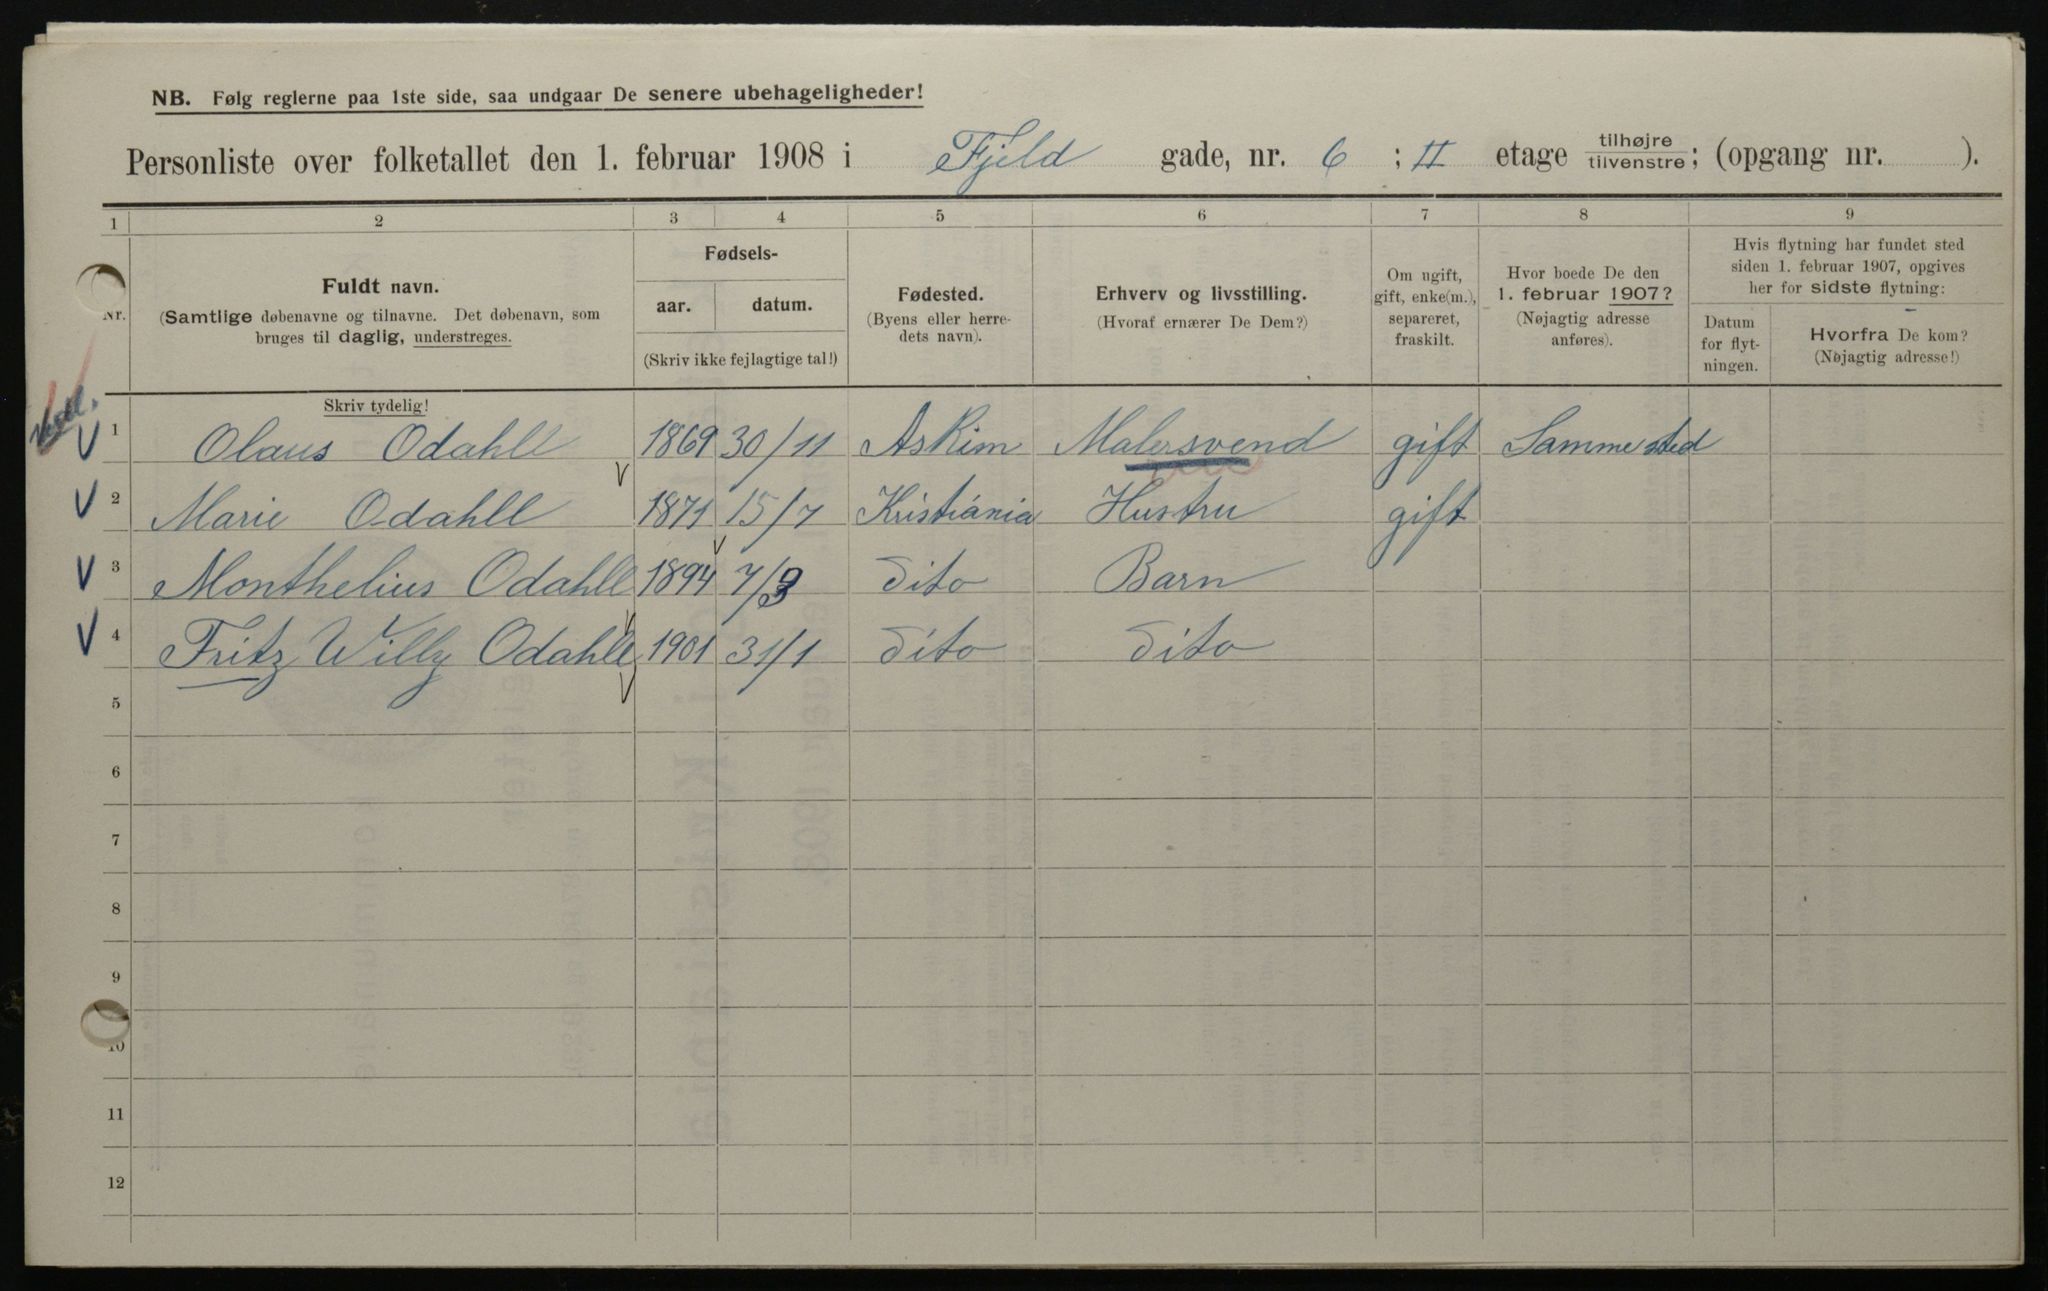 NB. Følg reglerne paa 1ste side, saa undgaar De senere ubehageligheder!
Personliste over folketallet den 1. februar 1908 i Fjeld gade, nr. 6 ; II etage tilhøjre/tilvenstre; (opgang nr. ).
1 2 3 4 5 6 7 8 9
Nr.
Fuldt navn.
(Samtlige døbenavne og tilnavne. Det døbenavn, som
bruges til daglig, understreges.
Skriv tydelig!
Fødsels-
aar. datum.
(Skriv ikke fejlagtige tal!)
Fødested.
(Byens eller herre-
dets navn).
Erhverv og livsstilling.
(Hvoraf ernærer De Dem?)
Om ugift,
gift, enke(m.),
separeret,
fraskilt.
Hvor boede De den
1. februar 1907?
(Nøjagtig adresse
anføres).
Hvis flytning har fundet sted
siden 1. februar 1907, opgives
her for sidste flytning:
Datum
for flyt-
ningen.
Hvorfra De kom?
(Nøjagtig adresse!)
1 Olaus Odahll 1869 30/11 Askim Malersvend gift Samme sted
2 Marie Odahll 1871 15/7 Kristiánia Hustru gift
3 Monthelius Odahll 1894 7/3 Dito Barn
4 Fritz Willy Odahll 1901 31/1 Dito Dito
5
6
7
8
9
10
11
12